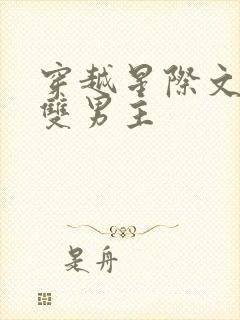 穿越星際文
雙男主
是舟